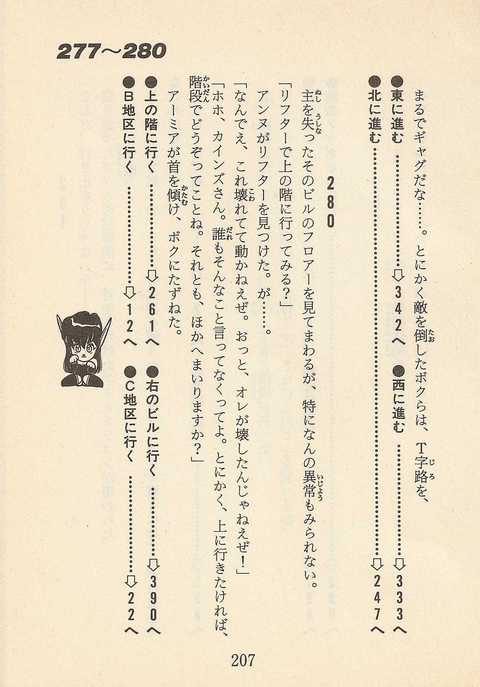 277〜280
まるでギャグだな……。とにかく敵を倒したボクらは、T字路を、
●東に進む……⇨342へ ●西に進む……⇨333へ
●北に進む……⇨247へ
280
主を失ったそのビルのフロアーを見てまわるが、特になんの異常もみられない。
「リフターで上の階に行ってみる?」
アンヌがリフターを見つけた。が……。
「なんでえ、これ壊れてて動かねえぜ。おっと、オレが壊したんじゃねえぜ!」
「ホホ、カインズさん。誰もそんなこと言ってなくってよ。とにかく、上に行きたければ、
階段でどうぞってことね。それとも、ほかへまいりますか?」
アーミアが首を傾け、ボクにたずねた。
●上の階に行く……⇨261へ ●右のビルに行く……⇨390へ
●B地区に行く……⇨12へ ●C地区に行く……⇨22へ
207